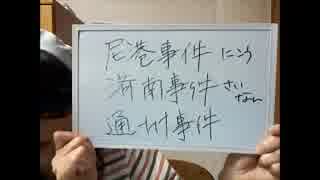 尼港事件 にこう
済南事件 さいなん
通州事件